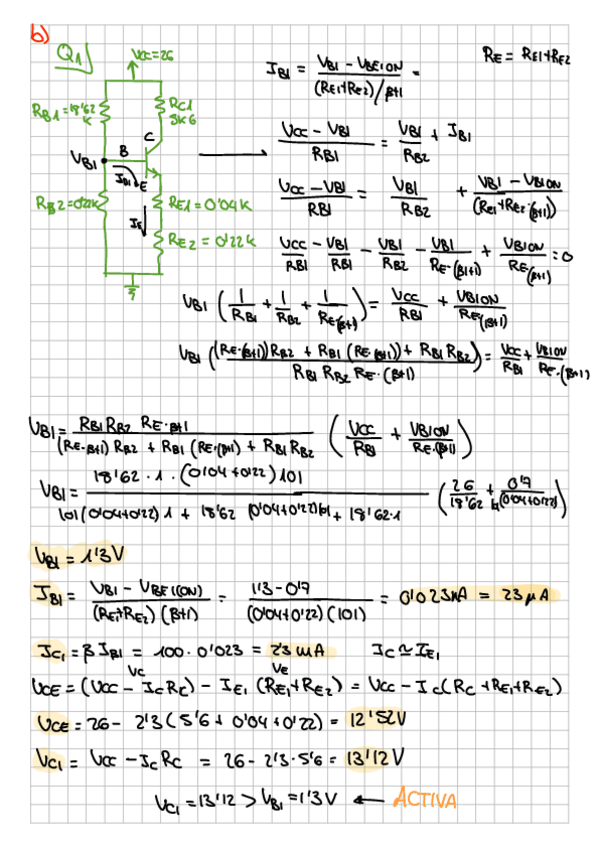 b)
Q1
VCC=26
RB1=18'62 K
RC1 5K6
C
B
VB1
IB1
E
RB2=0'22K
RE1=0'04K
IE
RE2=0'22K
IB1 = (VB1 - VBE1ON)/((RE1+RE2)/β+1) =
RE = RE1+RE2
(VCC - VB1)/RB1 = VB1/RB2 + IB1
(VCC - VB1)/RB1 = VB1/RB2 + (VB1 - VB1ON)/(RE1+RE2·(β+1))
VCC/RB1 - VB1/RB1 - VB1/RB2 - VB1/(RE·(β1+1)) + VB1ON/(RE(β+1)) = 0
VB1 (1/RB1 + 1/RB2 + 1/(RE·(β+1))) = VCC/RB1 + VB1ON/(RE·(β+1))
VB1 (((RE·(β+1))RB2 + RB1 (RE·(β+1)) + RB1 RB2)/(RB1 RB2 RE·(β+1))) = VCC/RB1 + VB1ON/(RE·(β+1))
VB1 = (RB1 RB2 RE·β+1)/((RE·β+1) RB2 + RB1 (RE·(β+1) + RB1 RB2) (VCC/RB1 + VB1ON/(RE·(β+1)))
VB1 = (18'62 · 1 · (0'04+0'22) 101)/(101(0'04+0'22) 1 + 18'62 (0'04+0'22)101 + 18'62·1) (26/18'62 + 0'7/((0'04+0'22)))
VB1 = 1'3V
IB1 = (VB1 - VBE1(ON))/((RE1+RE2)(β+1)) = (1'3-0'7)/((0'04+0'22)(101)) = 0'023mA = 23 μA
IC1 = β IB1 = 100 · 0'023 = 2'3 mA IC ≃ IE1
VC VE
VCE = (VCC - IC RC) - IE1 (RE1+RE2) = VCC - IC(RC+RE1+RE2)
VCE = 26 - 2'3(5'6 + 0'04 + 0'22) = 12'52V
VC1 = VCC - IC RC = 26 - 2'3·5'6 = 13'12 V
VC1 = 13'12 > VB1 = 1'3V ← ACTIVA